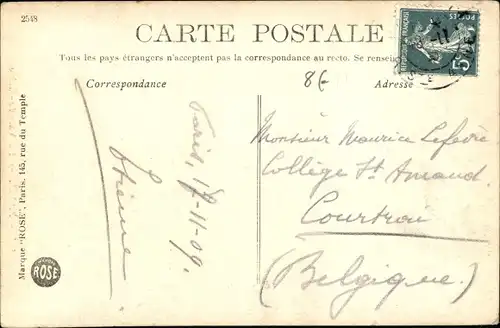 2548
CARTE POSTALE
Tous les pays étrangers n'acceptent pas la correspondance au recto. Se renseig
Correspondance
86
Adresse
POSTES
5c
Marque "ROSE", Paris, 145, rue du Temple
ROSE
Paris, 17-11-09.
Etienne
Monsieur Maurice Lefèvre
Collège St Amand.
Courtrai
(Belgique.)